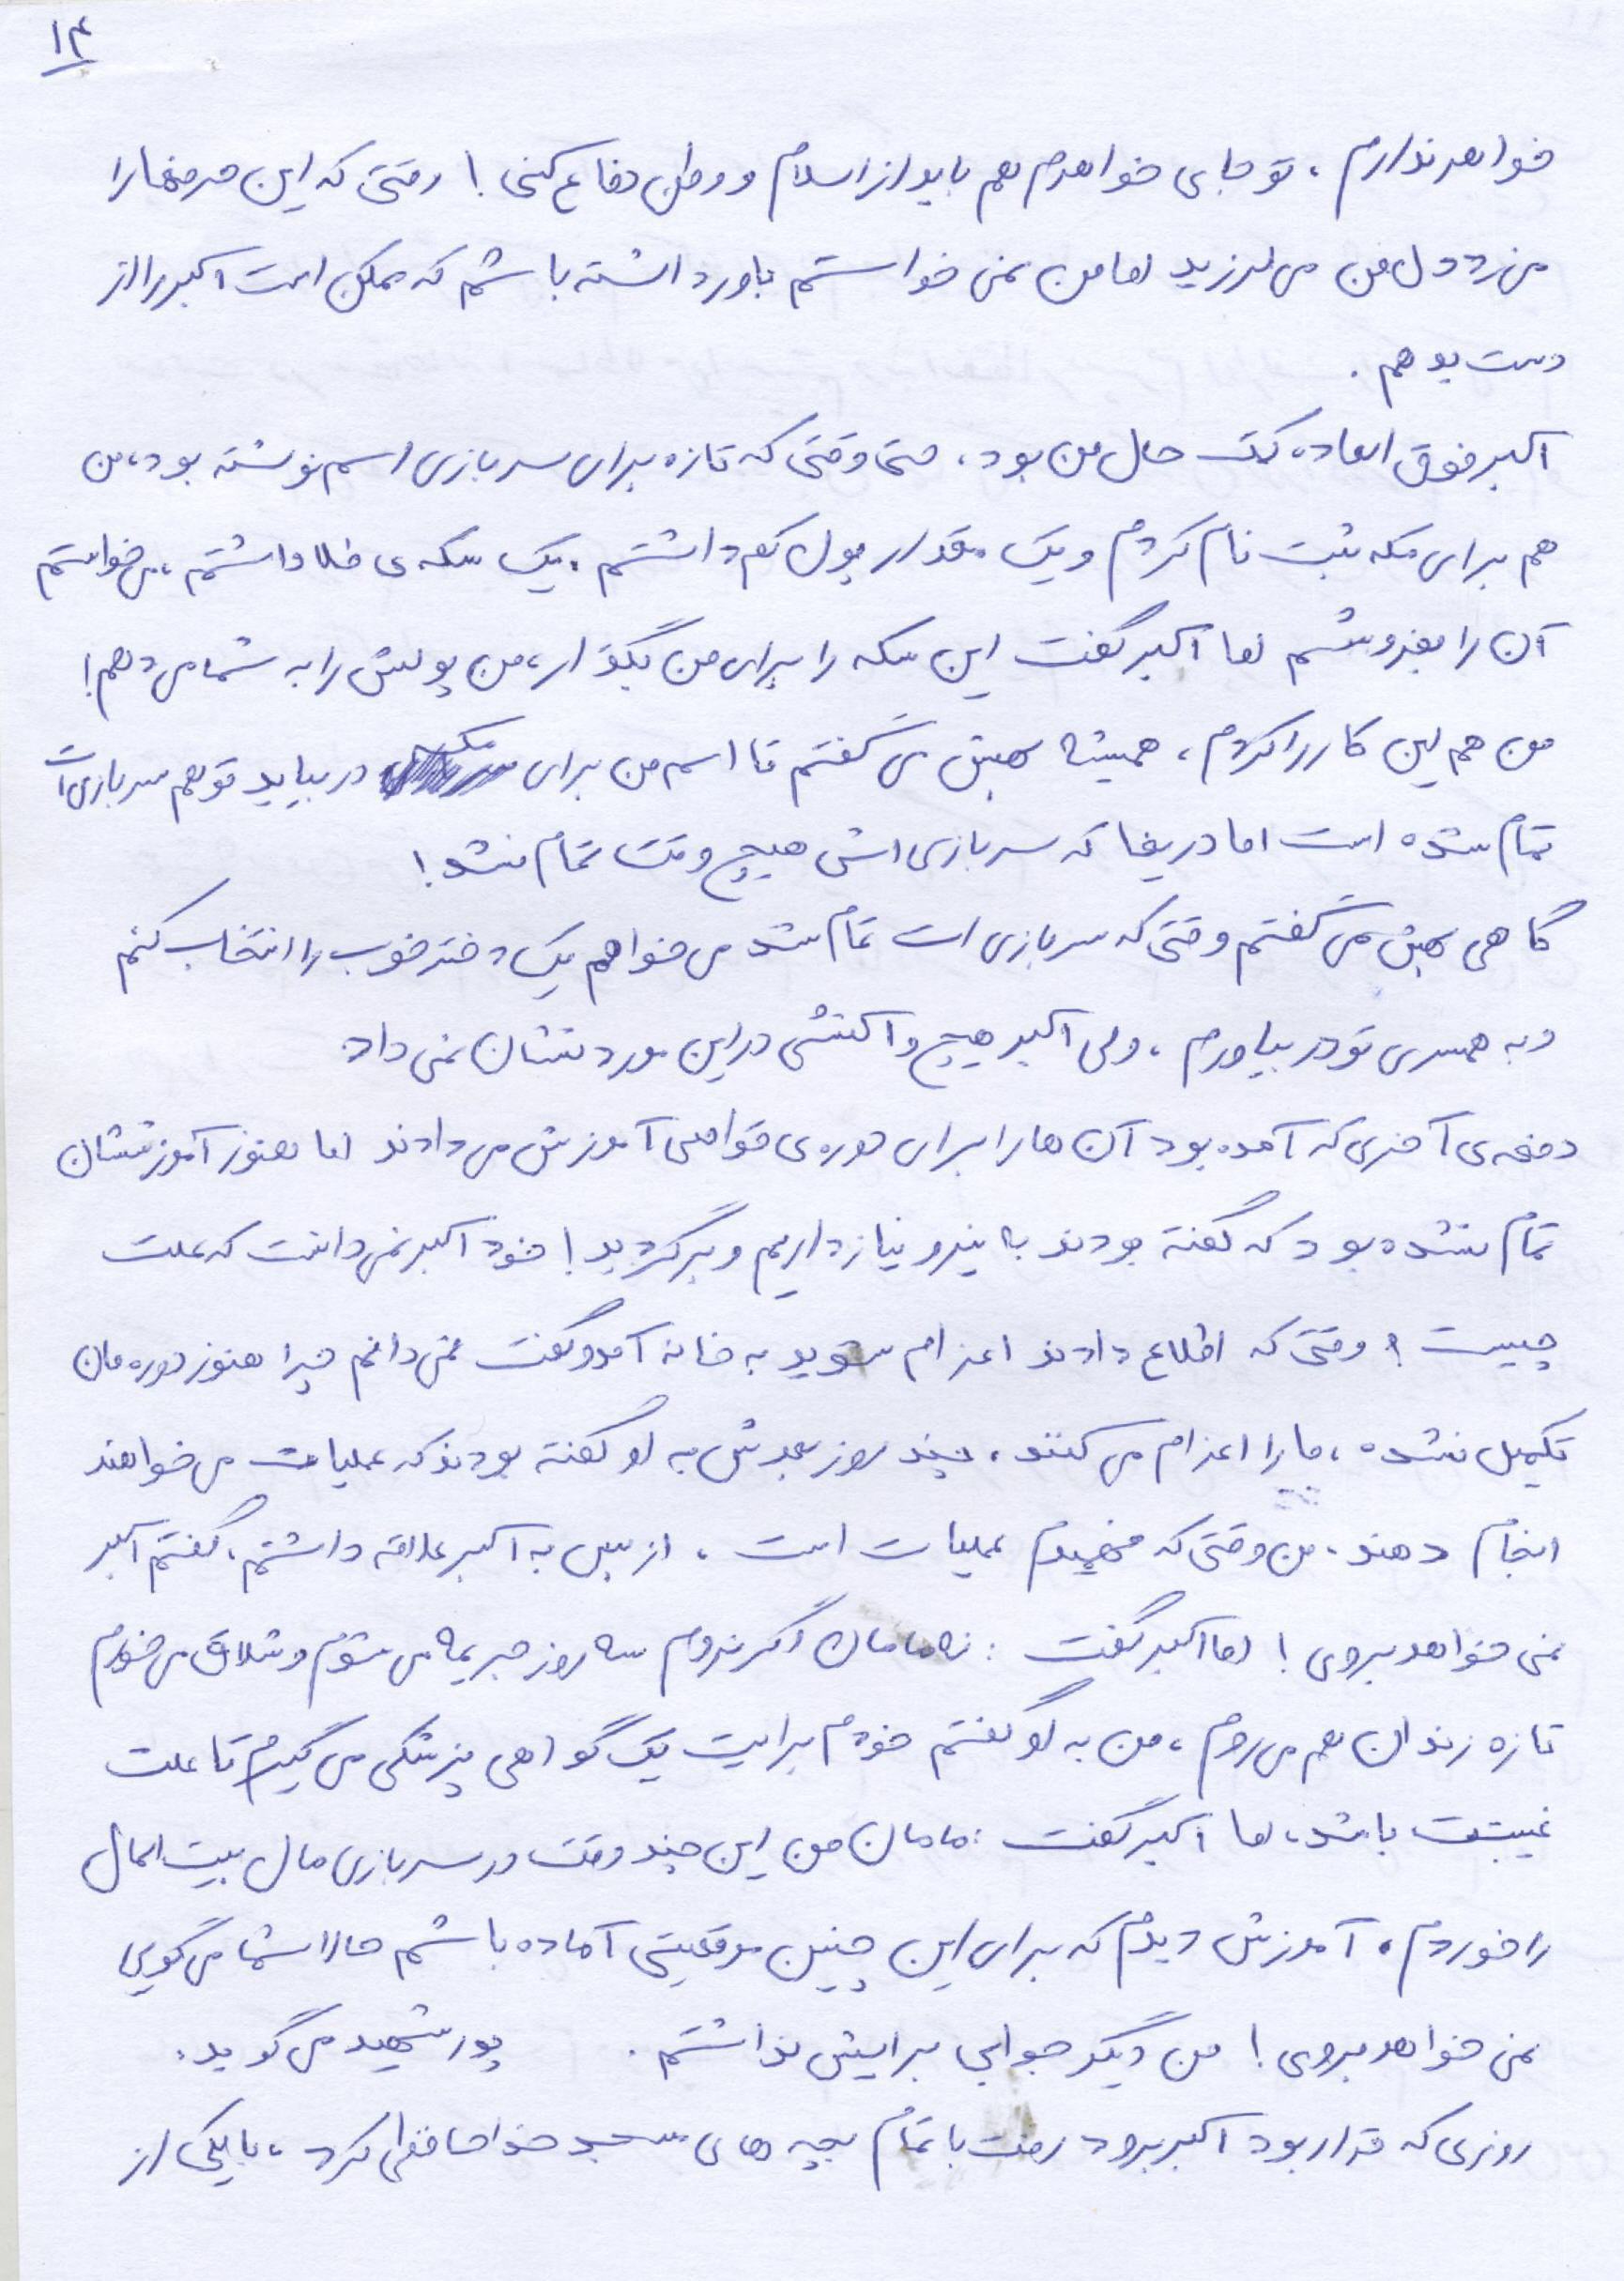 ۱۴
خواهر ندارم، تو جای خواهرم هم باید از اسلام و وطن دفاع کنی! وقتی که این حرفها را
می زد دل من می لرزید اما من نمی خواستم باور داشته باشم که ممکن است اکبر را از
دست بدهم.
اکبر فوق العاده کمک حال من بود، حتی وقتی که تازه برای سربازی اسم نوشته بود، من
هم برای مکه ثبت نام کردم و یک مقدار پول کم داشتم. یک سکه ی طلا داشتم، می خواستم
آن را بفروشم اما اکبر گفت این سکه را برای من بگذار، من پولش را به شما می دهم!
من هم این کار را کردم، همیشه بهش می گفتم تا اسم من برای مکه در بیاید تو هم سربازی ات
تمام شده است اما دریغا که سربازی اش هیچ وقت تمام نشد!
گاهی بهش می گفتم وقتی که سربازی ات تمام شد می خواهم یک دختر خوب را انتخاب کنم
و به همسری تو در بیاورم، ولی اکبر هیچ واکنشی در این مورد نشان نمی داد.
دفعه ی آخری که آمده بود آن ها را برای دوره ی غواصی آموزش می دادند اما هنوز آموزششان
تمام نشده بود که گفته بودند به نیرو نیاز داریم و برگردید! خود اکبر نمی دانست که علت
چیست؟ وقتی که اطلاع دادند اعزام شوید به خانه آمد و گفت نمی دانم چرا هنوز دوره مان
تکمیل نشده، ما را اعزام می کنند، چند روز بعدش به او گفته بودند که عملیات می خواهند
انجام دهند. من وقتی که فهمیدم عملیات است، از بس به اکبر علاقه داشتم، گفتم اکبر
نمی خواهد بروی! اما اکبر گفت: نه مامان اگر نروم سه روز جریمه می شوم و شلاق می خورم
تازه زندان هم می روم، من به او گفتم خودم برایت یک گواهی پزشکی می گیرم تا علت
غیبتت باشد، اما اکبر گفت: مامان من این چند وقت در سربازی مال بیت المال
را خوردم، آموزش دیدم که برای این چنین موقعیتی آماده باشم حالا شما می گویی
نمی خواهد بروی! من دیگر جوابی برایش نداشتم. پدر شهید می گوید:
روزی که قرار بود اکبر برود رفت با تمام بچه های مسجد خداحافظی کرد، با یکی از